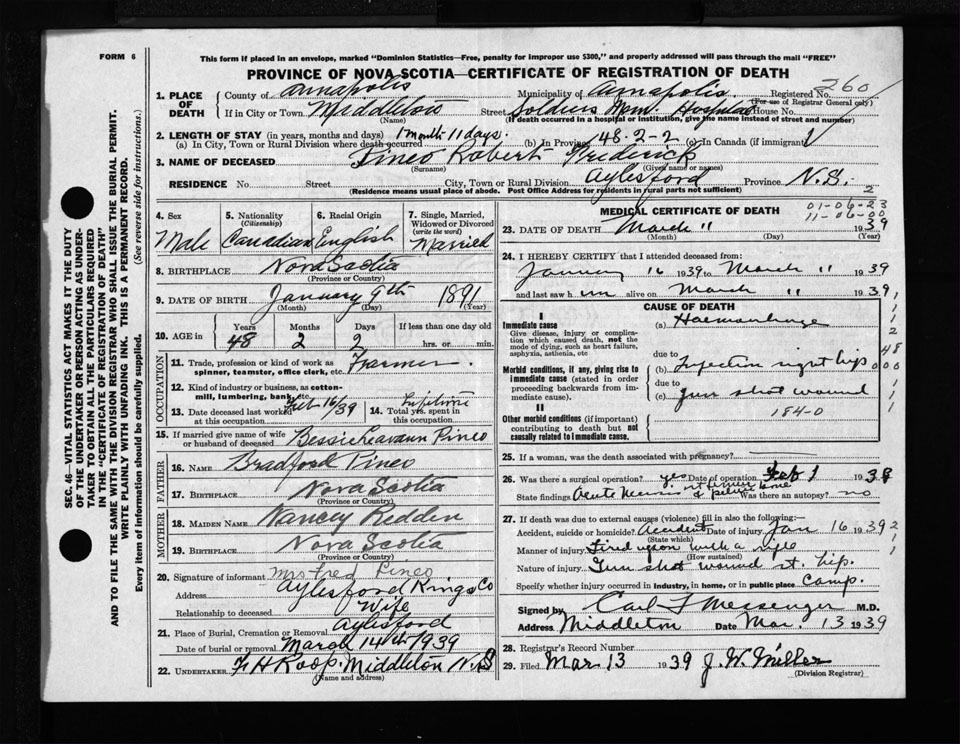 FORM 6
This form if placed in an envelope, marked "Dominion Statistics—Free, penalty for improper use $300," and properly addressed will pass through the mail "FREE"
PROVINCE OF NOVA SCOTIA—CERTIFICATE OF REGISTRATION OF DEATH
SEC. 46—VITAL STATISTICS ACT MAKES IT THE DUTY
OF THE UNDERTAKER OR PERSON ACTING AS UNDER-
TAKER TO OBTAIN ALL THE PARTICULARS REQUIRED
IN THE "CERTIFICATE OF REGISTRATION OF DEATH"
AND TO FILE THE SAME WITH THE DIVISION REGISTRAR WHO SHALL ISSUE THE BURIAL PERMIT.
WRITE PLAINLY WITH UNFADING INK. THIS IS A PERMANENT RECORD.
Every item of information should be carefully supplied. (See reverse side for instructions.)
1. PLACE OF DEATH County of Annapolis Municipality of Annapolis Registered No. 260
(For use of Registrar General only)
If in City or Town Middleton Street Soldiers Mem. Hospital House No.
(Name) (If death occurred in a hospital or institution, give the name instead of street and number)
2. LENGTH OF STAY (in years, months and days)
(a) In City, Town or Rural Division where death occurred 1 month 11 days. (b) In Province 48-2-2 (c) In Canada (if immigrant)
3. NAME OF DECEASED Pineo Robert Frederick
(Surname) (Given name or names)
RESIDENCE No. Street City, Town or Rural Division Aylesford Province N.S.
(Residence means usual place of abode. Post Office Address for residents in rural parts not sufficient)
4. Sex Male
5. Nationality (Citizenship) Canadian
6. Racial Origin English
7. Single, Married, Widowed or Divorced (write the word) Married
8. BIRTHPLACE Nova Scotia
(Province or Country)
9. DATE OF BIRTH January 9th 1891
(Month) (Day) (Year)
10. AGE in Years 48 Months 2 Days 2 If less than one day old hrs. or min.
OCCUPATION
11. Trade, profession or kind of work as spinner, teamster, office clerk, etc. Farmer.
12. Kind of industry or business, as cotton-mill, lumbering, bank, etc.
13. Date deceased last worked at this occupation Feb 16/39
14. Total yrs. spent in this occupation Lifetime
15. If married give name of wife or husband of deceased Bessie Pineo
FATHER
16. NAME Bradford Pineo
17. BIRTHPLACE Nova Scotia
(Province or Country)
MOTHER
18. MAIDEN NAME Nancey Redden
19. BIRTHPLACE Nova Scotia
(Province or Country)
20. Signature of informant Mrs Fred Pineo
Address Aylesford Kings Co
Relationship to deceased Wife
21. Place of Burial, Cremation or Removal Aylesford
Date of burial or removal March 14th 1939
22. UNDERTAKER F H Roop. Middleton N.S
(Name and address)
MEDICAL CERTIFICATE OF DEATH
01-06-23
11-06-00
2
23. DATE OF DEATH March 11 1939
(Month) (Day) (Year)
24. I HEREBY CERTIFY that I attended deceased from:
January 16 1939 to March 11 1939
and last saw him alive on March 11 1939
CAUSE OF DEATH
I
Immediate cause
Give disease, injury or complication which caused death, not the mode of dying, such as heart failure, asphyxia, asthenia, etc
(a) Haemorrhage
due to
Morbid conditions, if any, giving rise to immediate cause (stated in order proceeding backwards from immediate cause).
(b) Infection right hip
due to
(c) Gun shot wound
184-0
II
Other morbid conditions (if important) contributing to death but not causally related to immediate cause.
25. If a woman, was the death associated with pregnancy?
26. Was there a surgical operation? yes Date of operation Feb 1 1939
State findings Acute & pelvis Was there an autopsy? no
27. If death was due to external causes (violence) fill in also the following:—
Accident, suicide or homicide? Accident Date of injury Jan 16 1939
(State which)
Manner of injury Fired upon with a rifle
(How sustained)
Nature of injury Gun shot wound rt. hip.
Specify whether injury occurred in industry, in home, or in public place Camp.
Signed by Carl F Messenger M.D.
Address Middleton Date Mar. 13 1939
28. Registrar's Record Number
29. Filed Mar 13 1939 J. W. Miller
(Division Registrar)